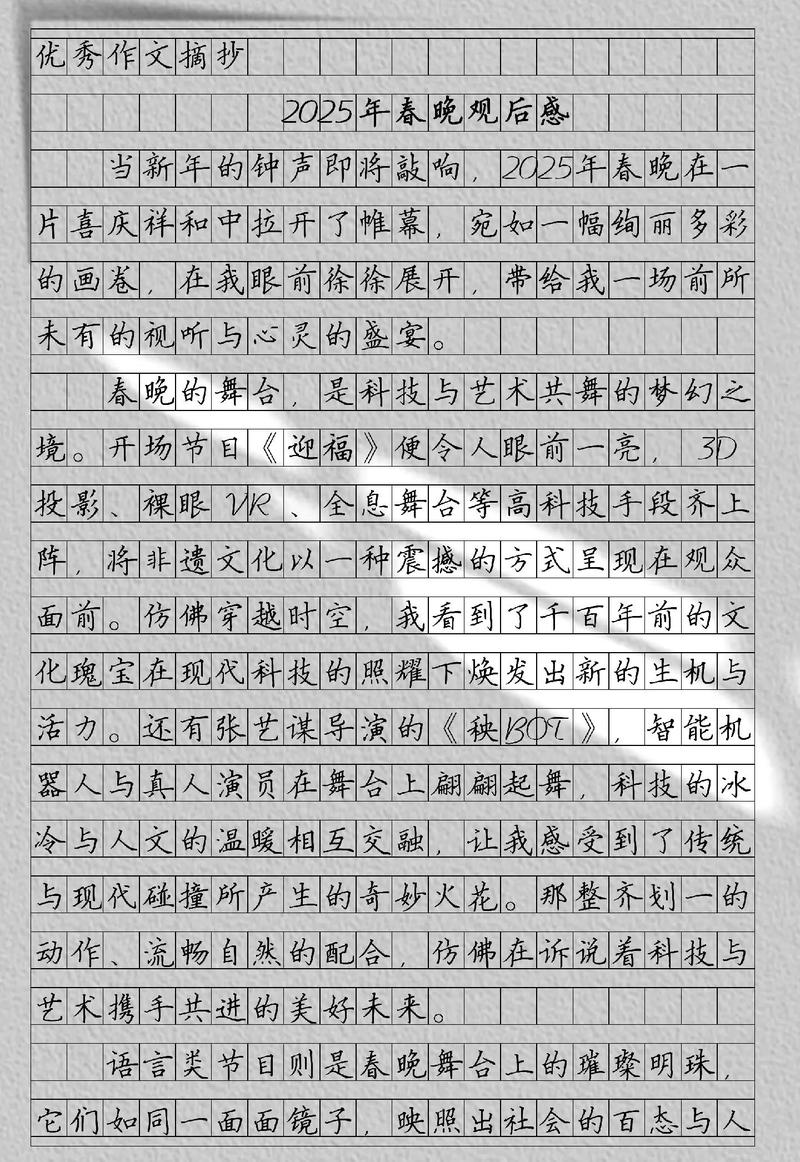 优秀作文摘抄
2025年春晚观后感
当新年的钟声即将敲响，2025年春晚在一
片喜庆祥和中拉开了帷幕，宛如一幅绚丽多彩
的画卷，在我眼前徐徐展开，带给我一场前所
未有的视听与心灵的盛宴。
春晚的舞台，是科技与艺术共舞的梦幻之
境。开场节目《迎福》便令人眼前一亮，3D
投影、裸眼VR、全息舞台等高科技手段齐上
阵，将非遗文化以一种震撼的方式呈现在观众
面前。仿佛穿越时空，我看到了千百年前的文
化瑰宝在现代科技的照耀下焕发出新的生机与
活力。还有张艺谋导演的《秧BOT》，智能机
器人与真人演员在舞台上翩翩起舞，科技的冰
冷与人文的温暖相互交融，让我感受到了传统
与现代碰撞所产生的奇妙火花。那整齐划一的
动作、流畅自然的配合，仿佛在诉说着科技与
艺术携手共进的美好未来。
语言类节目则是春晚舞台上的璀璨明珠，
它们如同一面面镜子，映照出社会的百态与人